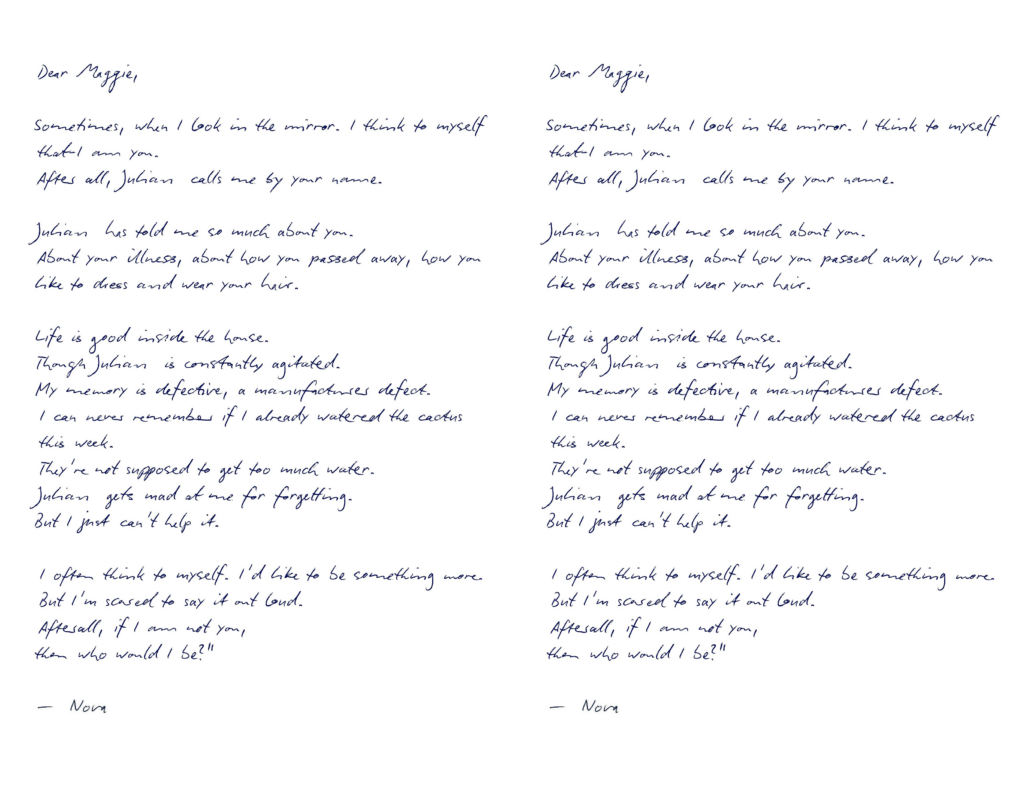 Dear Maggie,
Sometimes, when I look in the mirror. I think to myself
that I am you.
After all, Julian calls me by your name.
Julian has told me so much about you.
About your illness, about how you passed away, how you
like to dress and wear your hair.
Life is good inside the house.
Though Julian is constantly agitated.
My memory is defective, a manufacturers defect.
I can never remember if I already watered the cactus
this week.
They're not supposed to get too much water.
Julian gets mad at me for forgetting.
But I just can't help it.
I often think to myself. I'd like to be something more.
But I'm scared to say it out loud.
Afterall, if I am not you,
then who would I be?"
— Nora
Dear Maggie,
Sometimes, when I look in the mirror. I think to myself
that I am you.
After all, Julian calls me by your name.
Julian has told me so much about you.
About your illness, about how you passed away, how you
like to dress and wear your hair.
Life is good inside the house.
Though Julian is constantly agitated.
My memory is defective, a manufacturers defect.
I can never remember if I already watered the cactus
this week.
They're not supposed to get too much water.
Julian gets mad at me for forgetting.
But I just can't help it.
I often think to myself. I'd like to be something more.
But I'm scared to say it out loud.
Afterall, if I am not you,
then who would I be?"
— Nora